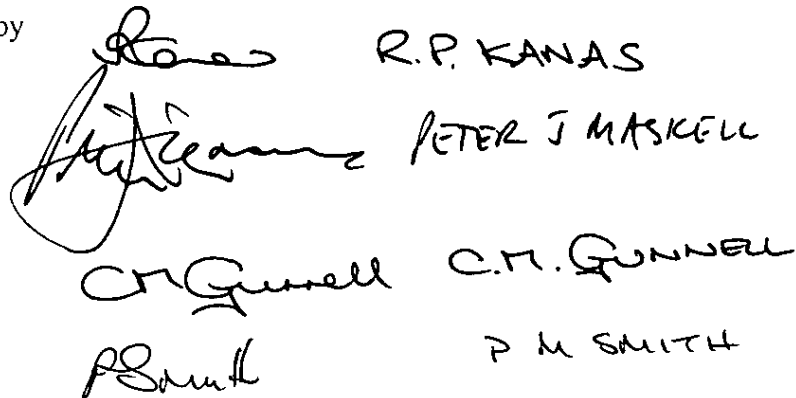 by
RKanas R.P. KANAS
PETER J MASKELL
CM Gunnell C.M. GUNNELL
PSmith P M SMITH